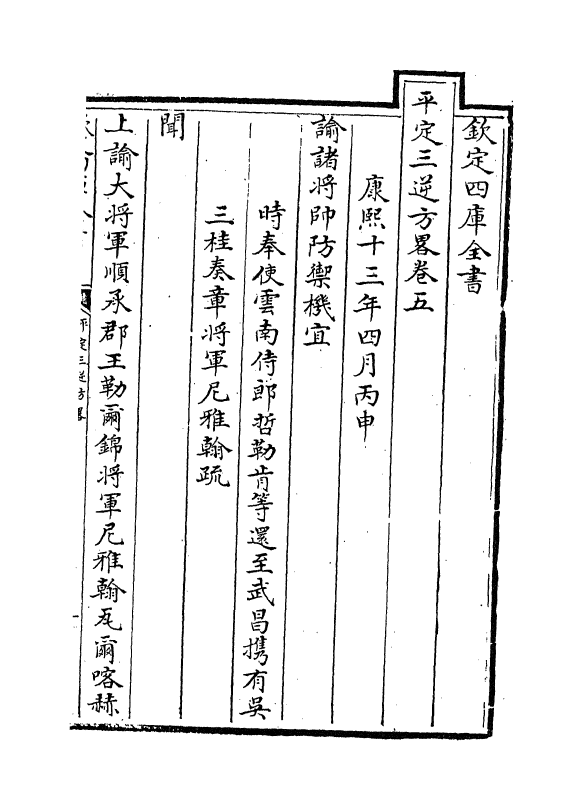 欽定四庫全書
平定三逆方畧卷五
康熙十三年四月丙申
諭諸將帥防禦機宜
時奉使雲南侍郎哲勒肯等還至武昌携有吳
三桂奏章將軍尼雅翰疏
聞
上諭大將軍順承郡王勒爾錦將軍尼雅翰瓦爾喀赫
平定三逆方畧